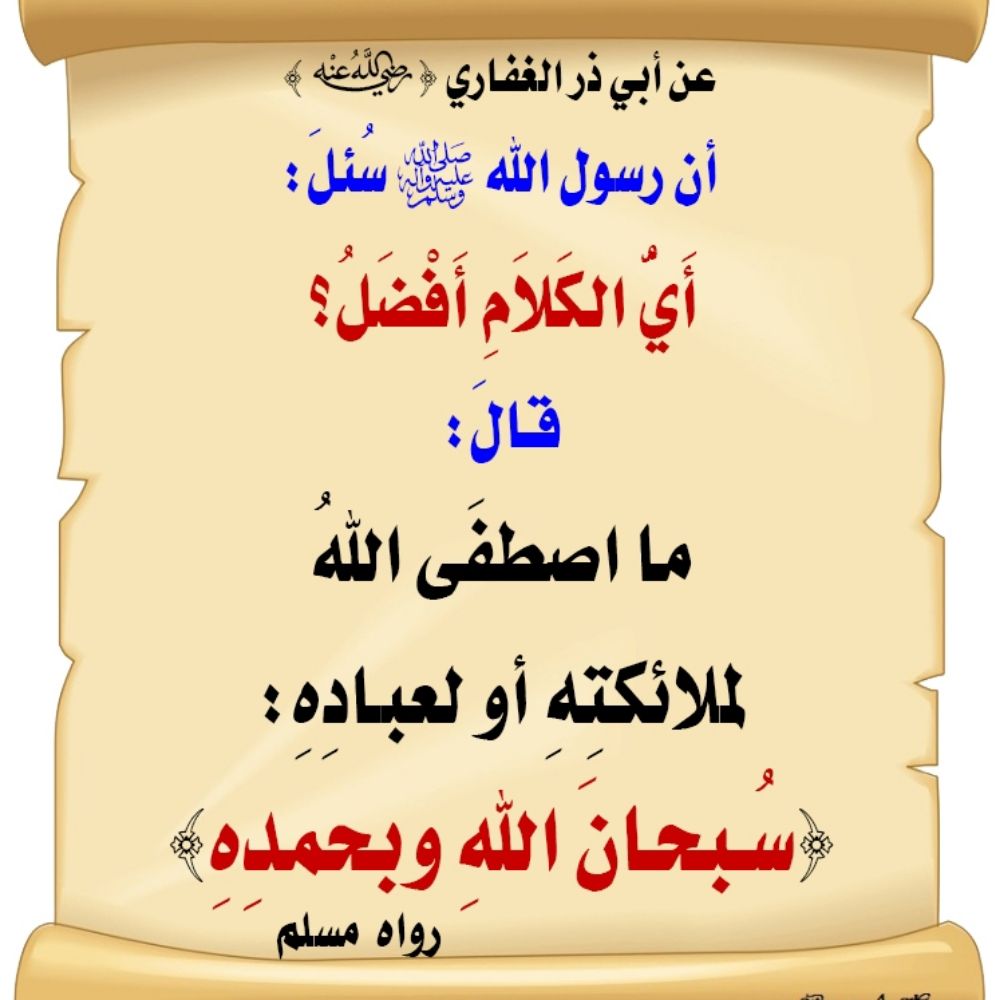 عن أبي ذر الغفاري ﴿ رضي الله عنه ﴾
أن رسول الله ﷺ سُئلَ:
أَيُّ الكَلاَمِ أَفْضَلُ؟
قالَ:
ما اصطفَى اللهُ
لملائكتِهِ أو لعبادِهِ:
﴿سُبحانَ اللهِ وبحمدِهِ﴾
رواه مسلم